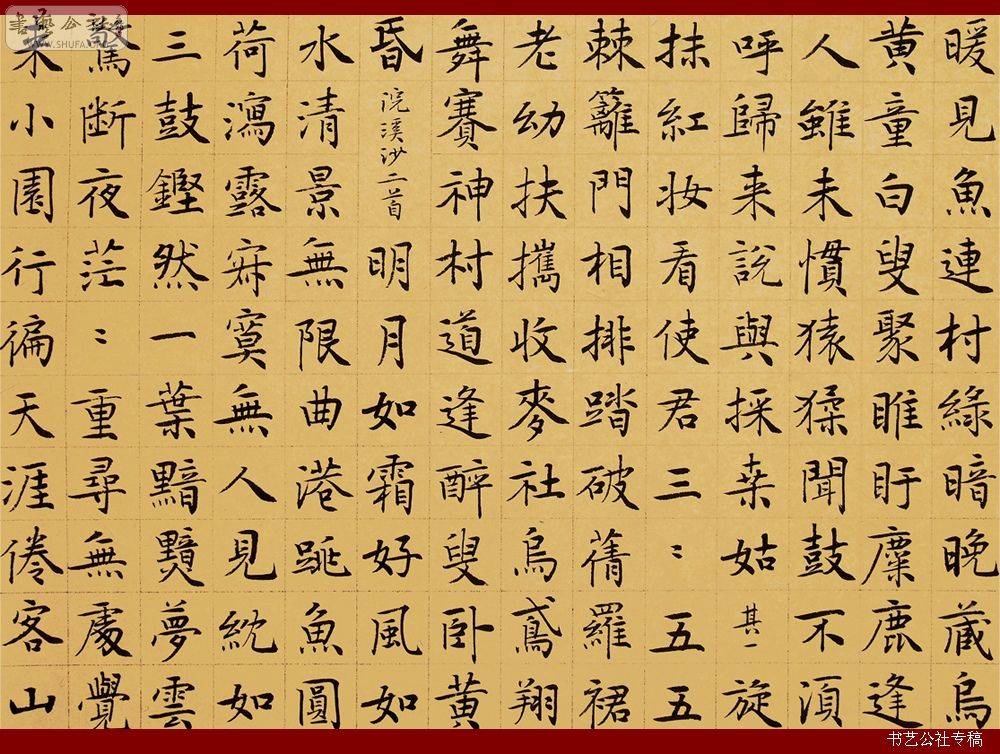 暖見魚連村綠暗晚藏烏
黄童白叟聚睢盱麋鹿逢
人雖未慣猿猱聞鼓不須
呼歸来說與採桒姑其一旋
抹紅妝看使君三〻五五
棘籬門相排踏破蒨羅裙
老幼扶攜收麥社烏鳶翔
舞賽神村道逢醉叟卧黄
昏浣溪沙二首明月如霜好風如
水清景無限曲港跳魚圓
荷瀉露寂寞無人見紞如
三鼓鏗然一葉黯黯夢雲
驚断夜茫〻重尋無處覺
来小園行徧天涯倦客山
书艺公社
WWW.SHUFA.ORG
书艺公社专稿